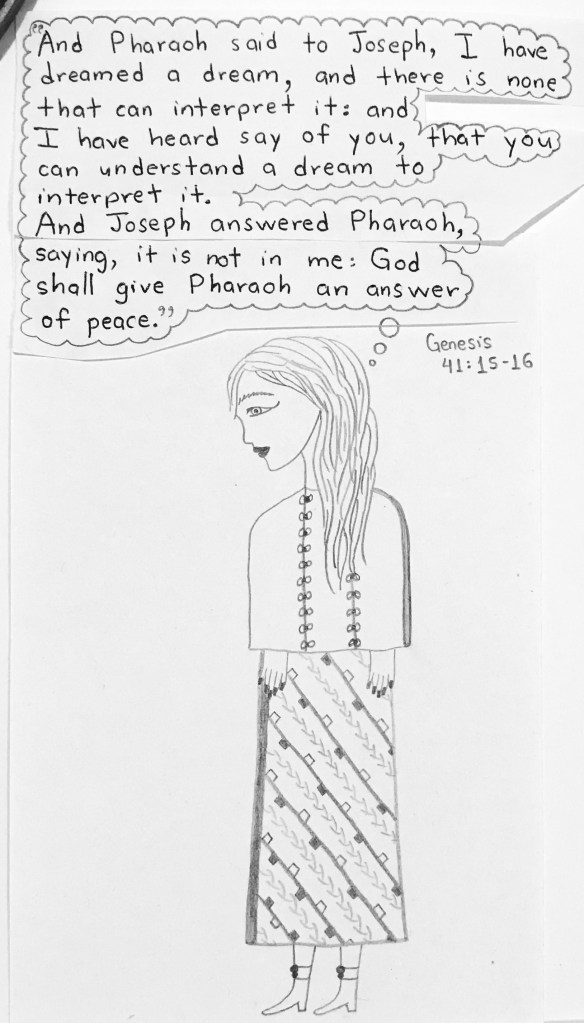 "And Pharaoh said to Joseph, I have
dreamed a dream, and there is none
that can interpret it: and
I have heard say of you, that you
can understand a dream to
interpret it.
And Joseph answered Pharaoh,
saying, it is not in me: God
shall give Pharaoh an answer
of peace."
Genesis
41:15-16